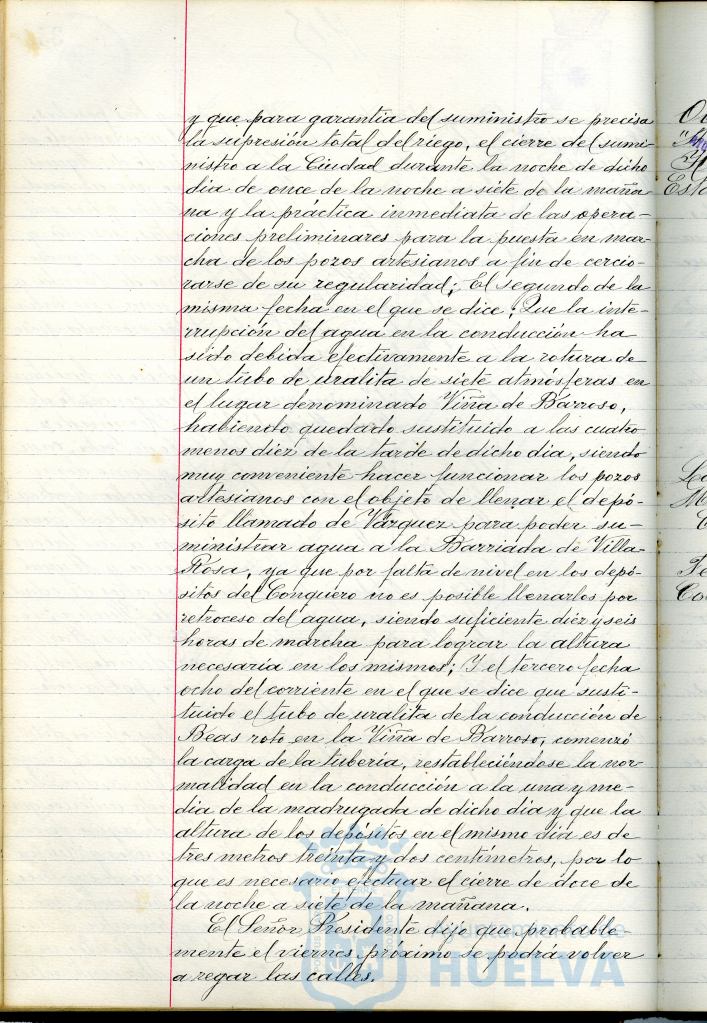 y que para garantia del suministro se precisa
la supresión total del riego, el cierre del sumi-
nistro a la Ciudad durante la noche de dicho
dia de once de la noche a siete de la maña-
na y la práctica inmediata de las opera-
ciones preliminares para la puesta en mar-
cha de los pozos artesianos a fin de cercio-
rarse de su regularidad; El segundo de la
misma fecha en el que se dice: Que la inte-
rrupción del agua en la conducción ha
sido debida efectivamente a la rotura de
un tubo de uralita de siete atmósferas en
el lugar denominado Viña de Barroso,
habiendo quedado sustituido a las cuatro
menos diez de la tarde de dicho dia, siendo
muy conveniente hacer funcionar los pozos
artesianos con el objeto de llenar el depó-
sito llamado de Vázquez para poder su-
ministrar agua a la Barriada de Villa-
Rosa, ya que por falta de nivel en los depó-
sitos del Conquero no es posible llenarlos por
retroceso del agua, siendo suficiente diez y seis
horas de marcha para lograr la altura
necesaria en los mismos; Y el tercero fecha
ocho del corriente en el que se dice que susti-
tuido el tubo de uralita de la conducción de
Beas roto en la Viña de Barroso, comenzó
la carga de la tuberia, restableciéndose la nor-
malidad en la conducción a la una y me-
dia de la madrugada de dicho dia y que la
altura de los depósitos en el mismo dia es de
tres metros treinta y dos centímetros, por lo
que es necesario efectuar el cierre de doce de
la noche a siete de la mañana.
El Señor Presidente dijo que probable-
mente el viernes próximo se podrá volver
a regar las calles.
HUELVA